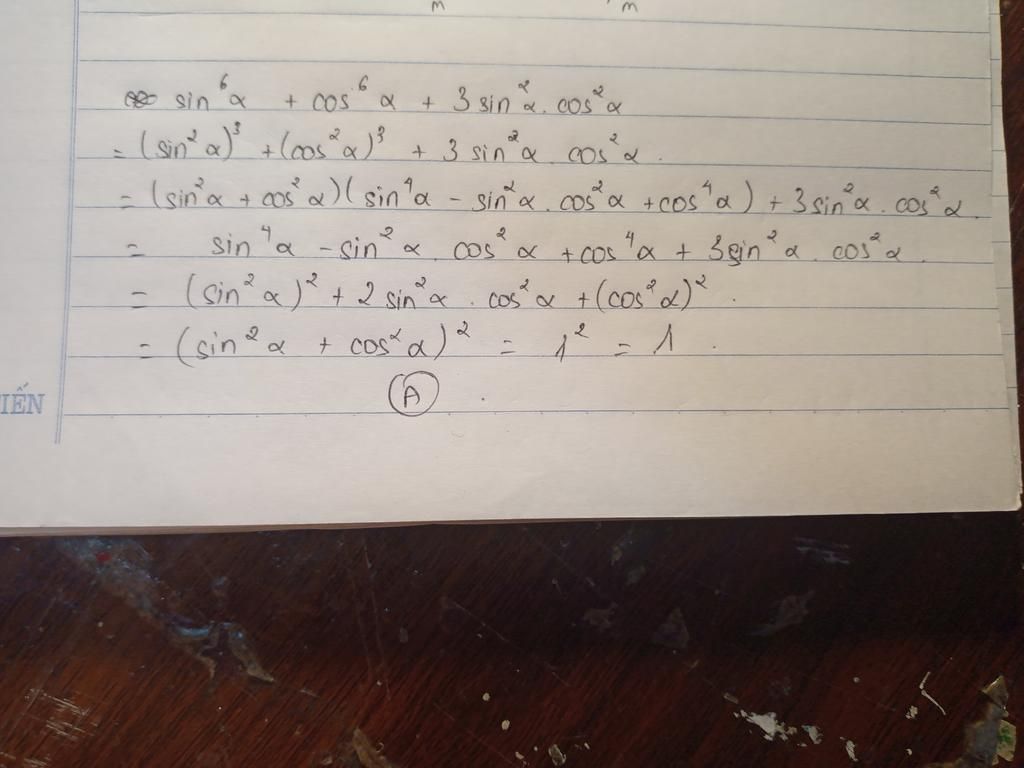 m m
sin⁶α + cos⁶α + 3 sin²α . cos²α
= (sin²α)³ + (cos²α)³ + 3 sin²α . cos²α .
= (sin²α + cos²α)(sin⁴α - sin²α . cos²α + cos⁴α) + 3 sin²α . cos²α .
= sin⁴α - sin²α . cos²α + cos⁴α + 3 sin²α . cos²α .
= (sin²α)² + 2 sin²α . cos²α + (cos²α)² .
= (sin²α + cos²α)² = 1² = 1 .
A .
IẾN